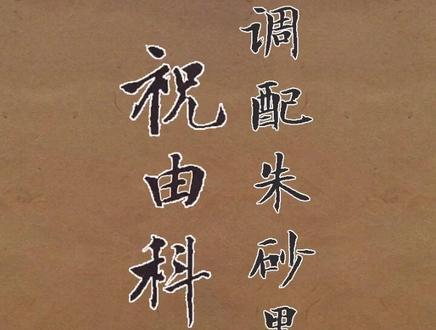 调配朱砂
祝由科